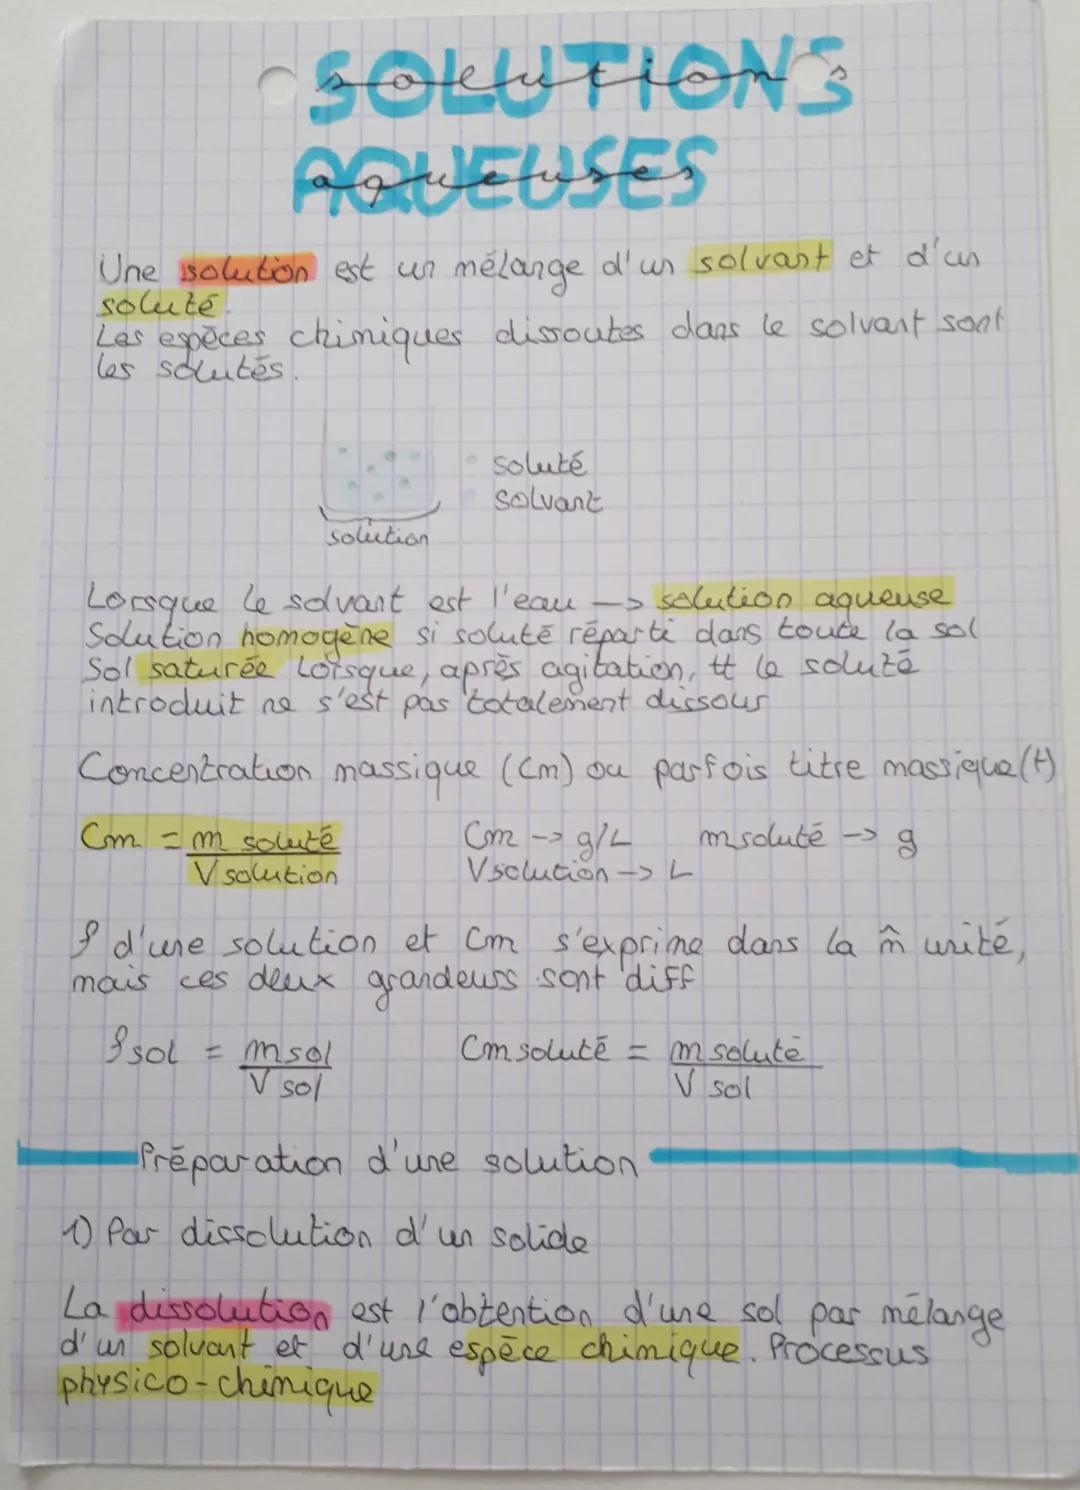 SOLUTIONS
solutions
AQUEUSES
aqueuses
Une solution est un mélange d'un solvant et d'un
soluté.
Les espèces chimiques dissoutes dans le solvant sont
les solutés.
soluté
solvant
solution
Lorsque le solvant est l'eau -> solution aqueuse
Solution homogène si soluté réparti dans toute la sol
Sol saturée lorsque, après agitation, tt le soluté
introduit ne s'est pas totalement dissous
Concentration massique (Cm) ou parfois titre massique (t)
Cm = m soluté / V solution
Cm -> g/L m soluté -> g
V solution -> L
ρ d'une solution et Cm s'exprime dans la m̂ unité,
mais ces deux grandeurs sont diff
ρ sol = m sol / V sol
Cm soluté = m soluté / V sol
Préparation d'une solution
1) Par dissolution d'un solide
La dissolution est l'obtention d'une sol par mélange
d'un solvant et d'une espèce chimique. Processus
physico-chimique